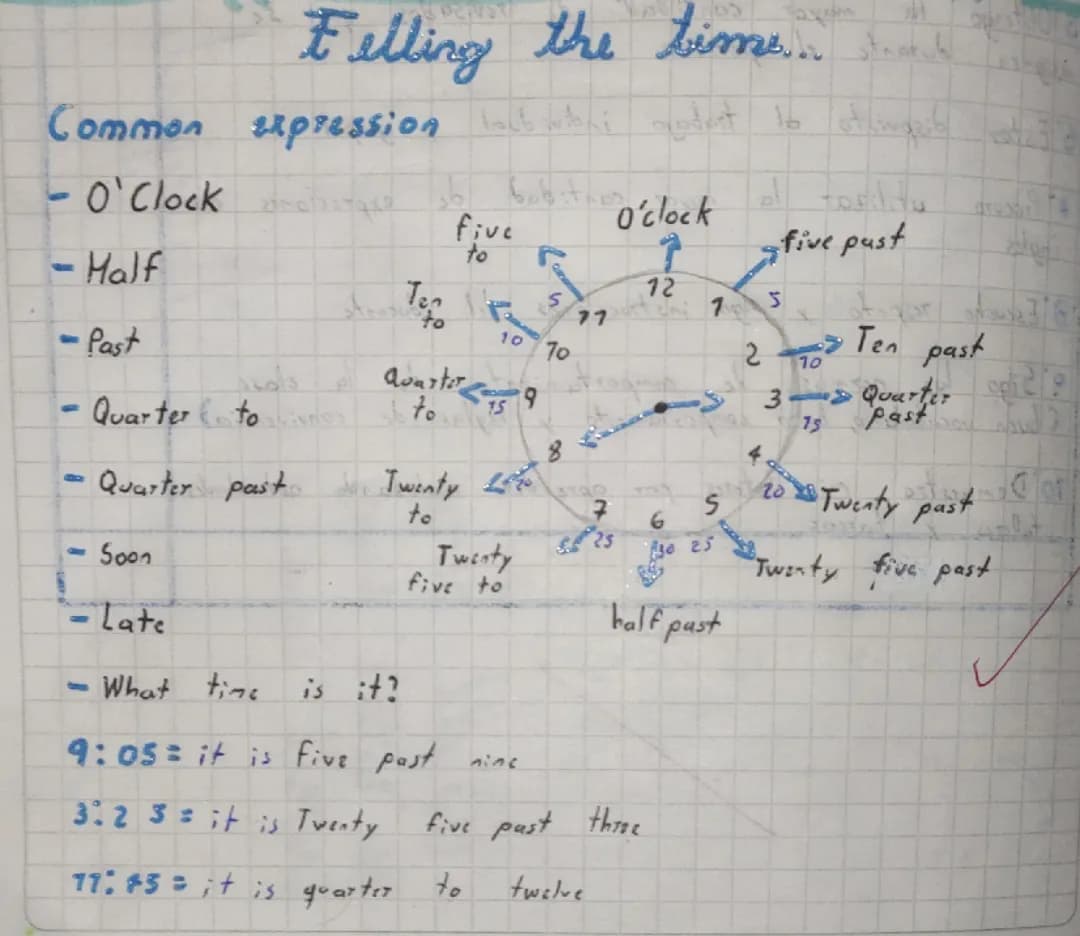 Telling the time...
Common expression
- O'Clock
- Half
- Past
- Quarter to
- Quarter past
- Soon
- Late
- What time is it?
O'clock
five past
Ten past
Quarter past
Twenty past
Twenty five past
half past
Twenty five to
Twenty to
Quarter to
Ten to
five to
12
1 5
2 10
3 15
4 20
5 25
6 30
7 25
8 20
9 15
10 10
11 5
9:05 = it is five past nine
3:25 = it is Twenty five past three
11:45 = it is quarter to twelve